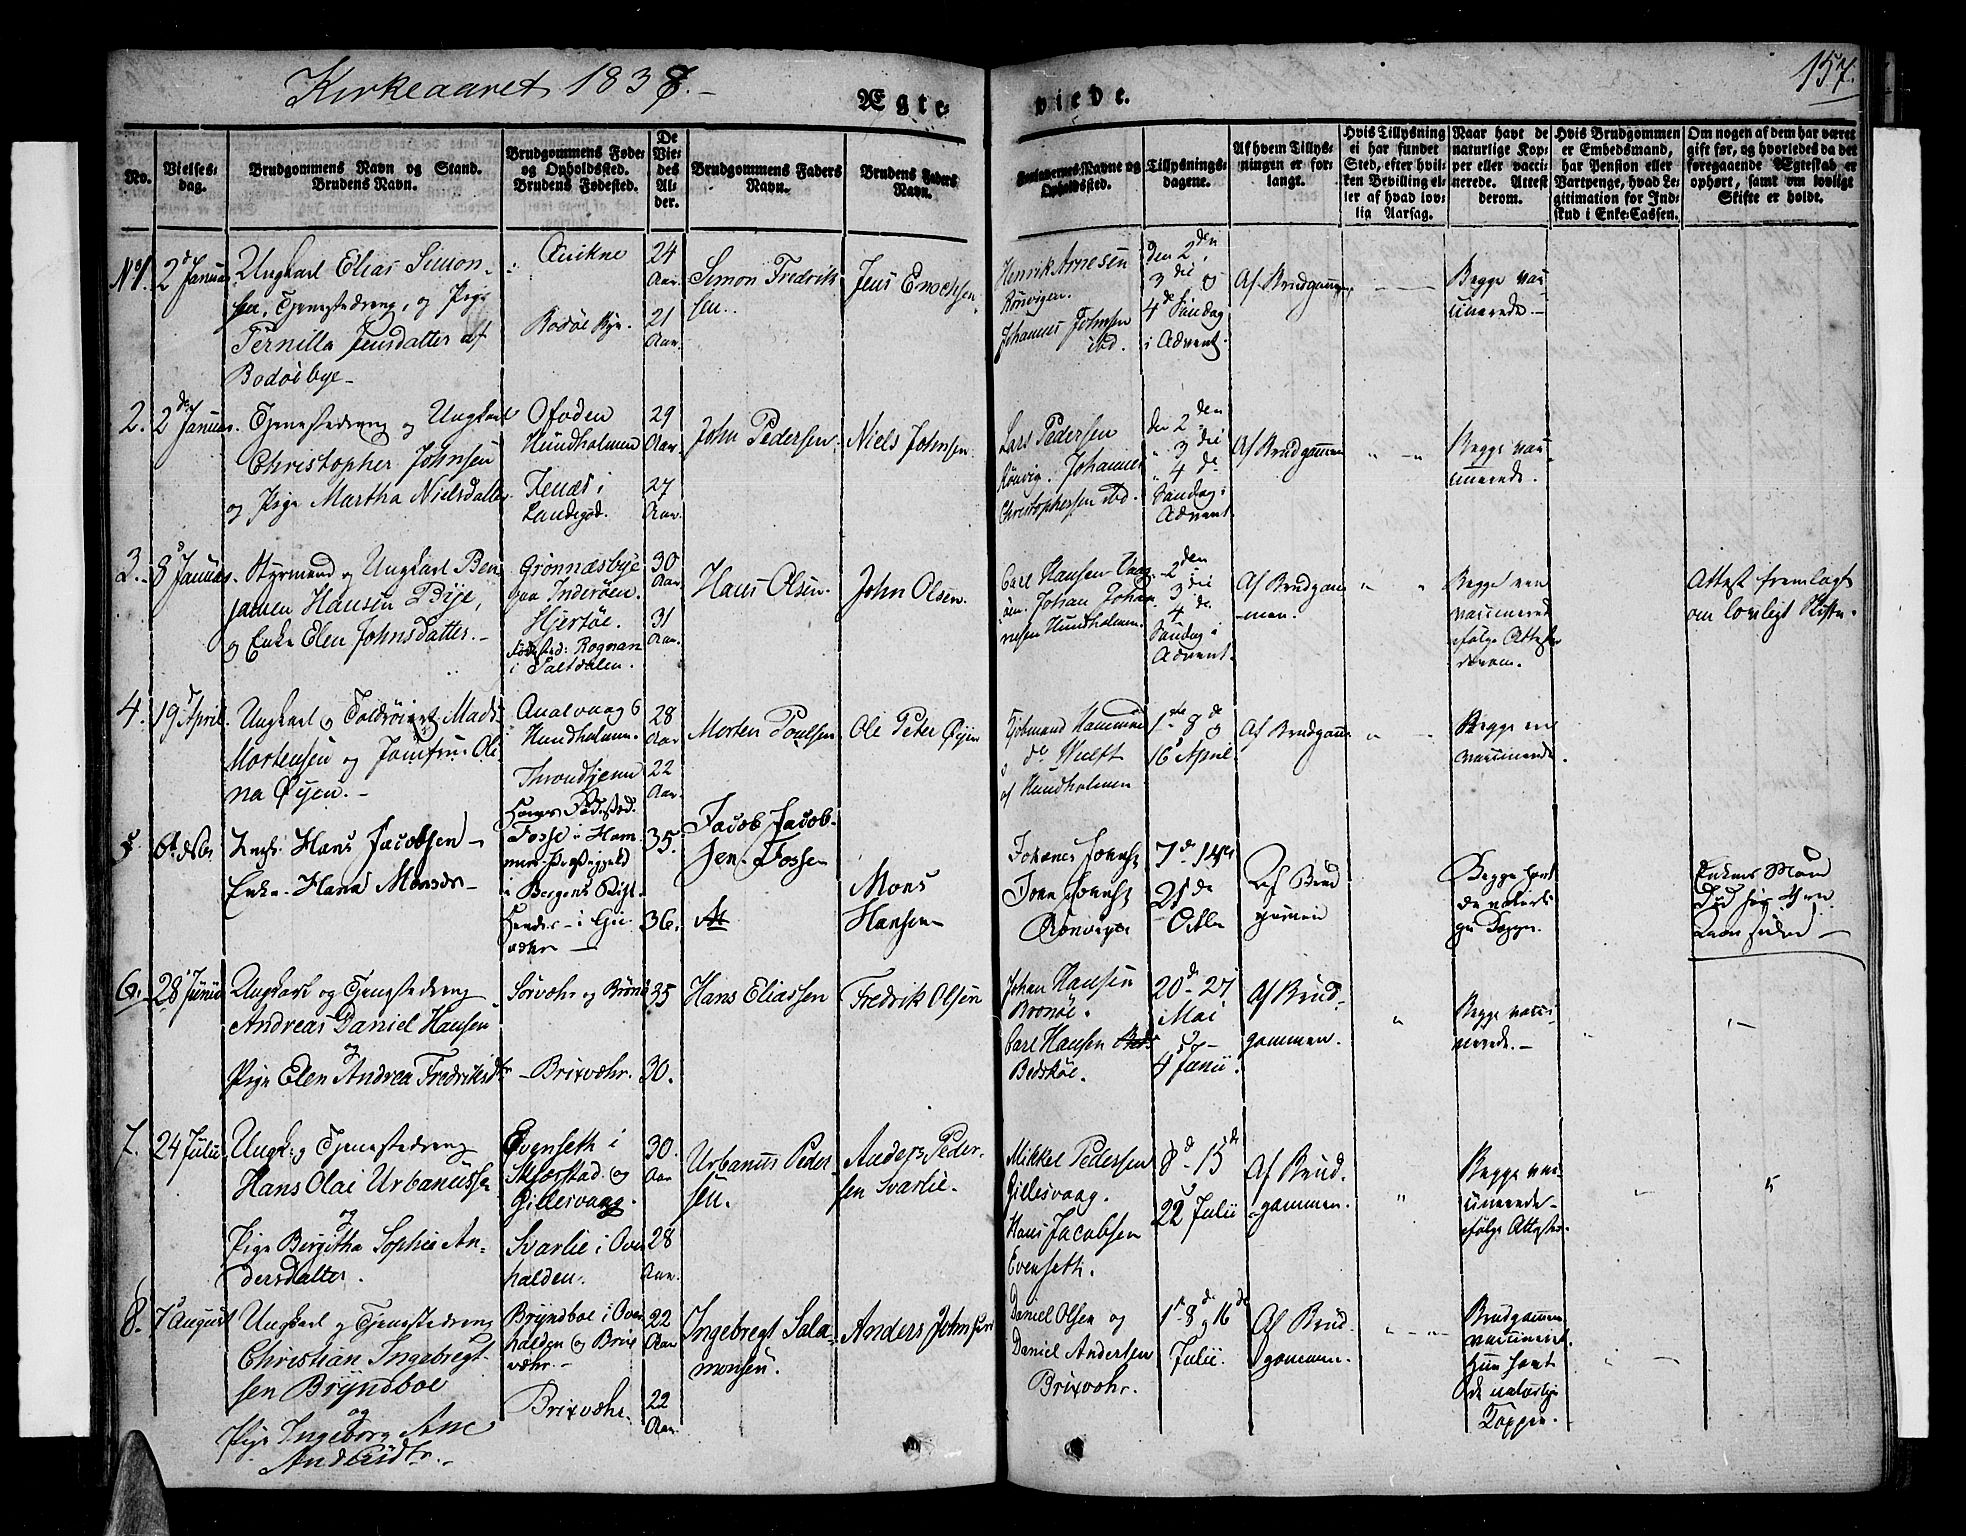 Kirkeaaret 1838.-
Ægte-
viede.
157.
No.
Vielses-
dag.
Brudgommens Navn og Stand.
Brudens Navn.
Brudgommens Føde-
og Opholdssted.
Brudens Fødested.
De
Vie-
des
Al-
der.
Brudgommens Faders
Navn.
Brudens Faders
Navn.
Forlovernes Navne og
Opholdssted.
Tillysnings-
dagene.
Af hvem Tillys-
ningen er for-
langt.
Hvis Tillysning
ei har fundet
Sted, efter hvil-
ken Bevilling el-
ler af hvad lov-
lig Aarsag.
Naar havt de
naturlige Kop-
per eller vacci-
nerede. Attest
derom.
Hvis Brudgommen
er Embedsmand,
har Pension eller
Vartpenge, hvad Le-
gitimation for Ind-
skud i Enke-Cassen.
Om nogen af dem har været
gift før, og hvorledes da det
foregaaende Ægteskab er
ophørt, samt om lovligt
Skifte er holdt.
No 1.
2d Januar
Ungkarl Elias Simon-
sen, Tjenestedreng, og Pige
Pernilla Jensdatter af
Bodöe bye-
Bodöe Bye.
24
Aar.
21
Aar.
Simon Fredrik-
sen.
Jens Enochsen
Henrik Arnesen
Rönvigen.
Johannes Johnsen
ibd.
Den 2den,
3die og
4de Söndag
i Advent.
Af Brudgommen
Begge vac-
cinerede.-
2.
2de Januar.
Tjenestedreng og Ungkarl
Christopher Johnsen
og Pige Martha Nielsdatter.
Ofoden
Hundholmen
Fenæs i
Landegod.
29
Aar.
27
Aar.
John Pedersen.
Niels Johnsen
Lars Pedersen
Rönvig. Johannes
Christophersen ibd.
den 2den
" 3die
" 4de
Söndag i
Advent.
Af Brudgommen
Begge vac-
cinerede.
3.
8d Januar.
Styrmand og Ungkarl Ben-
jamen Hansen Bije,
og Enke Elen Johnsdatter.-
Grönnæsbye
paa Inderöen.
Hjertöe.
Födested: Rognan
i Saltdalen.
30
Aar
31
Aar.
Hans Olsen.
John Olsen.
Carl Hansen Vaag-
öen. Johan Johan-
nesen Hundholmen.
2den
3die
4de
Söndag i
Advent.
Af Brudgom-
men.
Begge ere
vaccinerede
ifölge Attester
derom.
Attest fremlagt
om lovligt Skifte.
4.
19d April.
Ungkarl og Toldroier Mads
Mortensen og Jomfru Oli-
na Öijen.-
Hundholmen.
Throndhjem
28
Aar
22
Aar.
Morten Poulsen.
Ole Peter Öijen
Kjöbmand Hammer
og de Wulff
af Hundholmen
1ste 8de og
16d April.
Af Brudgom.
Begge ere
vaccinerede.
5.
Hans Jacobsen -
Enke. Hana Monsdr -
Hans Födested.
Fosse i Ham-
mers Præstegjeld
i Bergens Stift.
Hendes - i Gie-
væhr -
35.
36.
Jacob Jacob-
sen Fosse-
Mons
Hansen-
Johanes Joensr
Joen Joensr
Rönvigen
7de 14de
21de
Octbr
Af Brud
gomen
Begge havt
de naturli-
ge Kopper.
Enkens Man
Död for 4re
Aar siden -
6.
28d Junii
Ungkarl og Tjenestedreng
Andreas Daniel Hansen
og
Pige Elen Andrea Fredriksdtr
Sörvær og Bronö
Brixvæhr.
35
30.
Hans Eliassen
Fredrik Olsen
Johan Hansen
Bronöe.
Carl Hansen
Bedsköe.
20de 27
Mai
og -
4 Junii.
Af Brud-
gommen.
Begge vacci-
nerede.-
7.
24 Julii
Ungk: og Tjenestedreng
Hans Olai Urbanussen
og
Pige Bergitha Sophie An-
dersdatter.
Evenseth i
Skjerstad og
Gillesvaag.
Svarlie i Over-
halden.
30.
Aar
28
Aar.
Urbanus Peder-
sen.
Anders Peder-
sen Svarlie.
Mikkel Pedersen
Gillesvaag.
Hans Jacobsen
Evenseth.
8de 15de
og
22 Julii
Af Brud-
gommen.
Begge vac-
cinerede
ifölge Attester.
8.
7d August
Ungkarl og Tjenestedreng
Christian Ingebregt-
sen Bryndboe
og
Pige Ingeborg Ane
Andersdtr.-
Bryndboe i Over-
halden og Brix-
væhr.-
Brixvæhr.
22
Aar
22
Aar.
Ingebregt Sala-
monsen.
Anders Johnsen
Daniel Olsen og
Daniel Andersen
Brixvæhr.
1ste 8de og 16de
Julii.
Af Brud-
gommen.
Brudgommen
vaccineret
hun havt
de naturlige
Kopper.